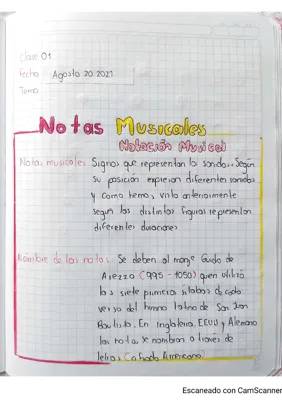 Clase 01
Fecha Agosto 20 2021
Tema
Notas Musicales
Notación Musical
Notas musicales: Signos que representan los sonidos. Según
su posición expresan diferentes sonidos
y como hemos visto anteriormente
según las distintas figuras representan
diferentes duraciones
Nombre de las notas: Se deben al monje Guido de
Arezzo (995 - 1050) quien utilizó
las siete primeras sílabas de cada
verso del himno latino de San Juan
Bautista. En Inglaterra, EEUU y Alemania
las notas se nombran a través de
letras: Cifrado Americano.
Escaneado con CamScanner